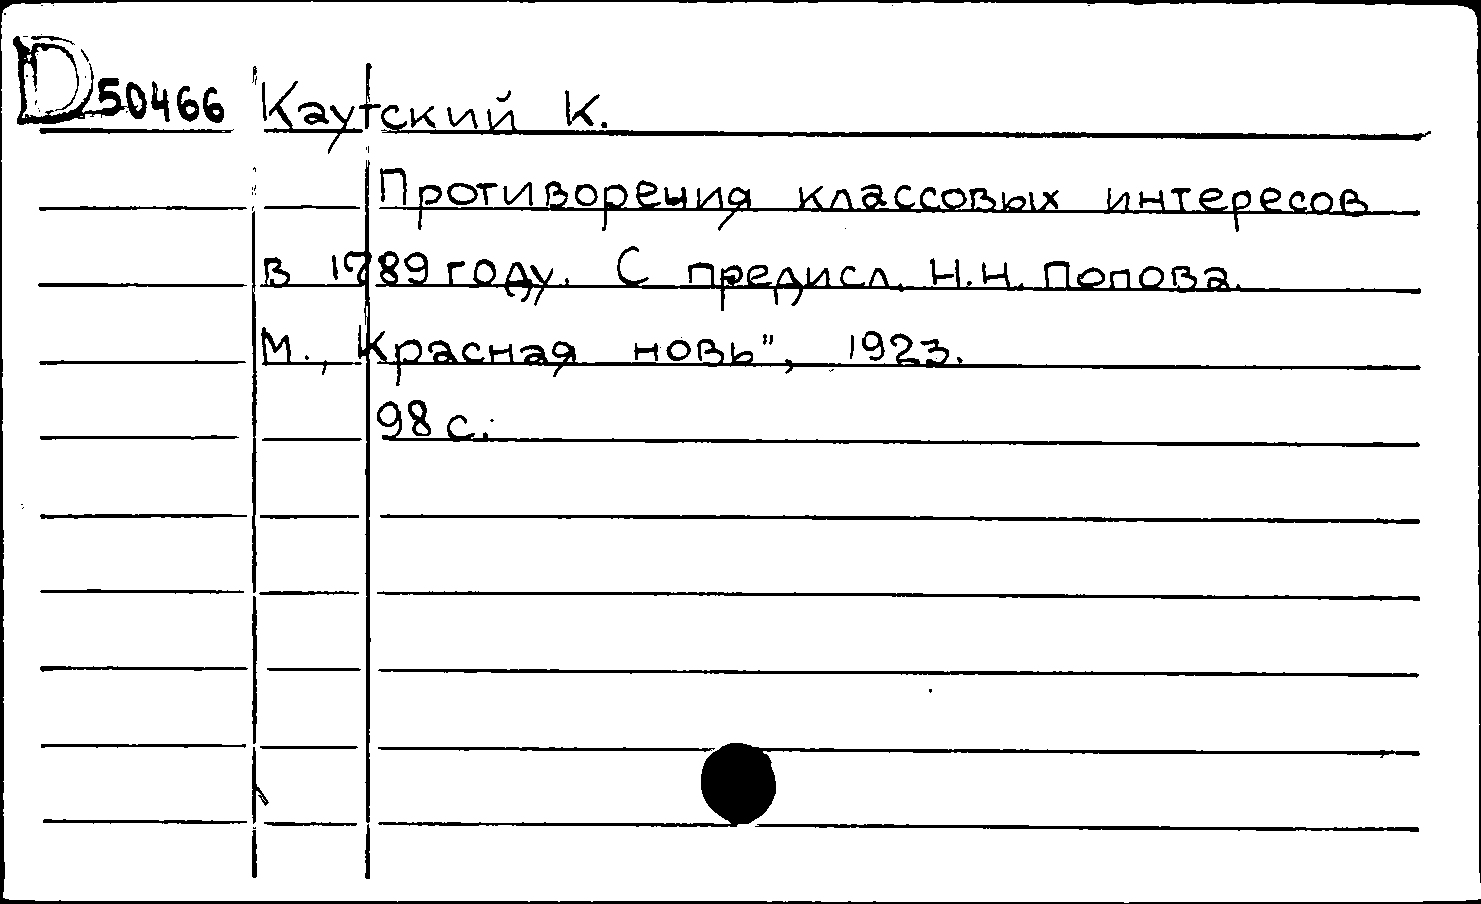 D50466 Каутский К.
Противоречия классовых интересов
в 1789 году. С предисл. Н.Н. Попова.
М., „Красная новь”, 1923.
98 с.